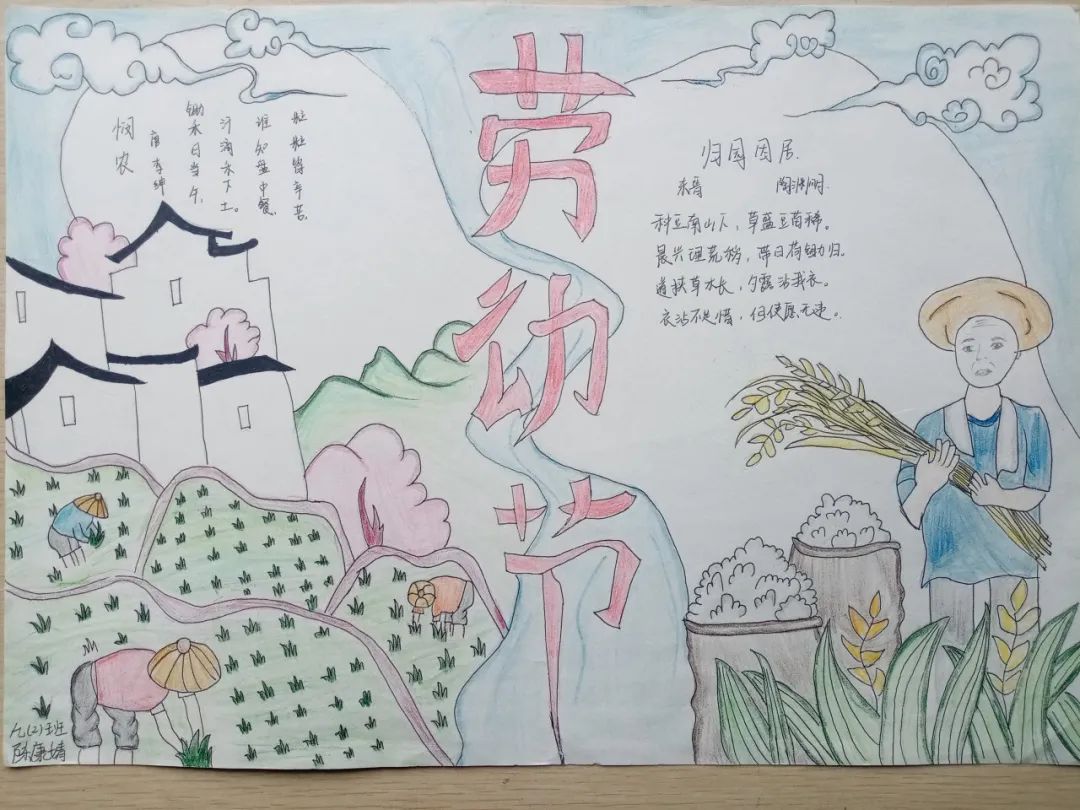 劳动节
悯农
唐 李绅
锄禾日当午,
汗滴禾下土。
谁知盘中餐,
粒粒皆辛苦。
归园田居.
东晋 陶渊明.
种豆南山下,草盛豆苗稀。
晨兴理荒秽,带月荷锄归。
道狭草木长,夕露沾我衣。
衣沾不足惜,但使愿无违。
九(2)班
陈康